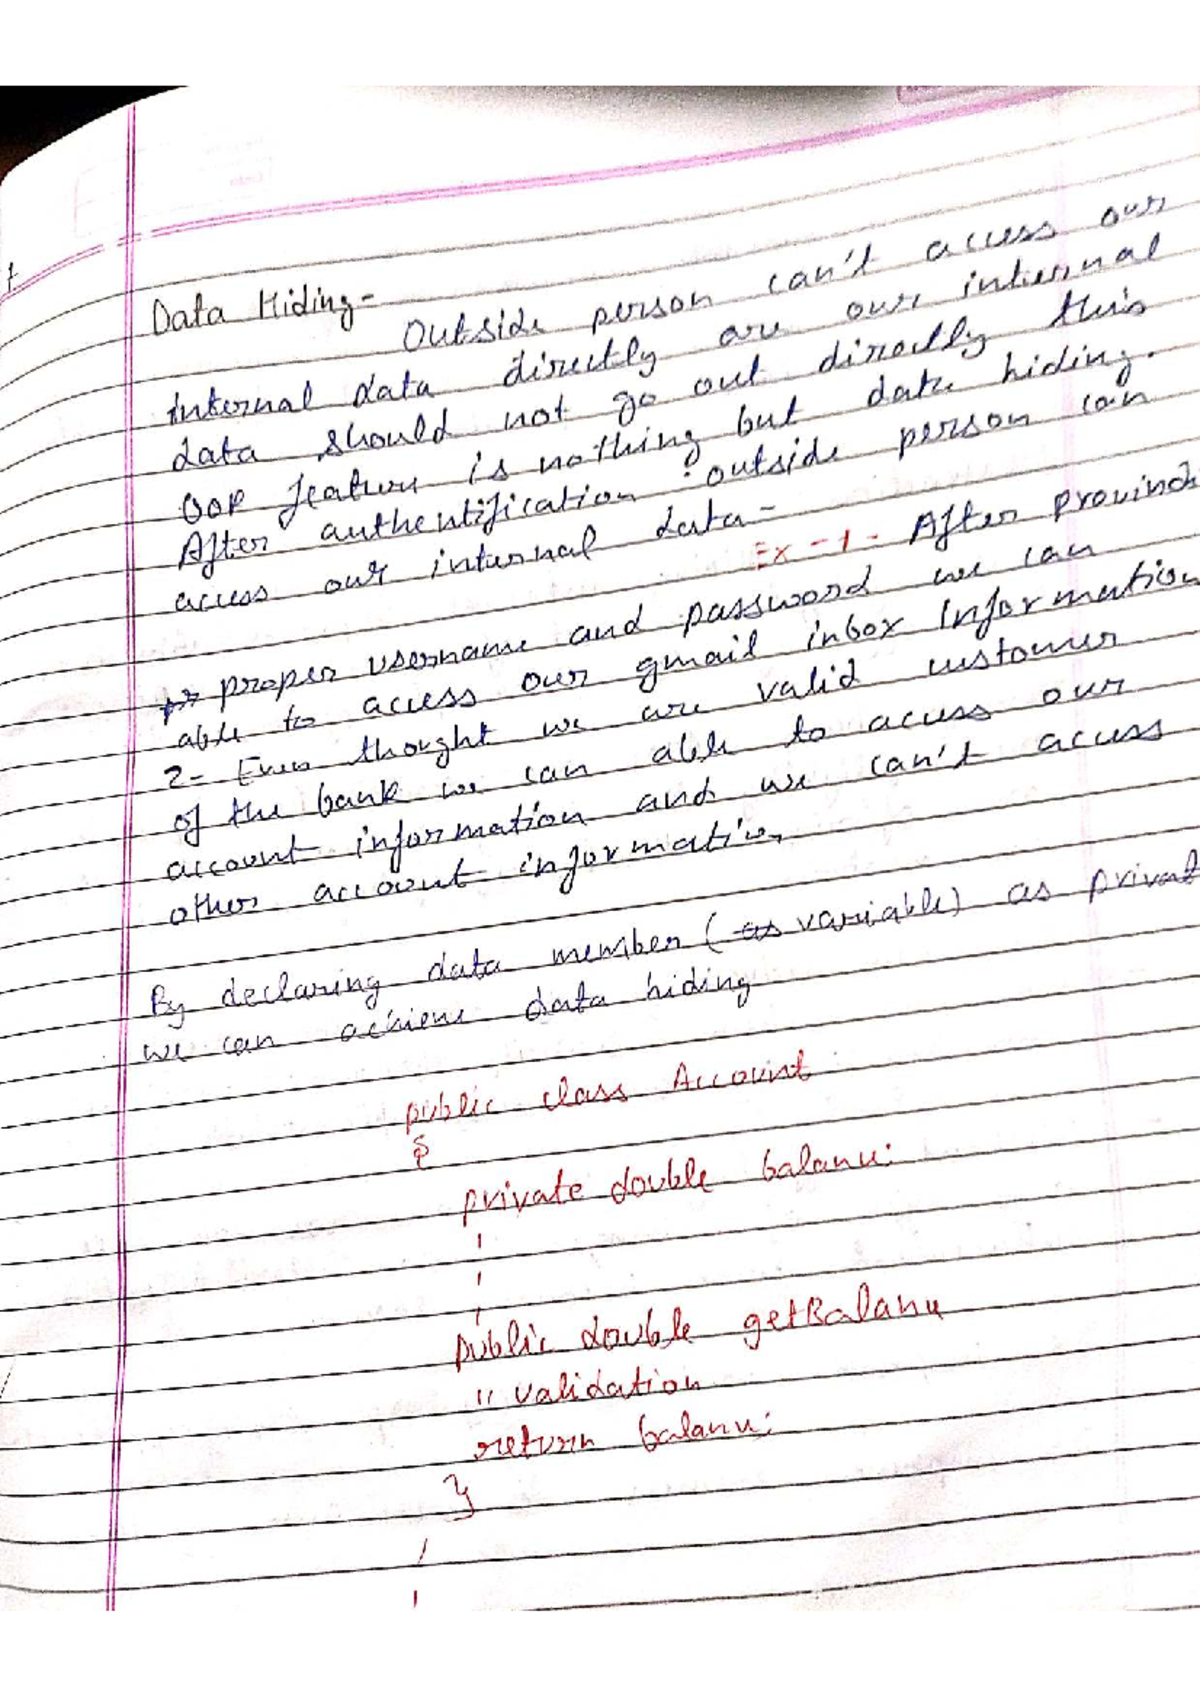 Data Hiding-
Outside person can't access our
internal data directly are our internal
data should not go out directly this
OOP feature is nothing but data hiding.
After authentification outside person can
access our internal data-
Ex-1- After provindi
proper username and password we can
able to access our gmail inbox Information
2- Even thought we are valid customer
of the bank we can able to access our
account information and we can't access
other account information
By declaring data member (as variable) as privat
we can achieve data hiding
public class Account
{
private double balance;
public double getBalance
// validation
return balance;
}